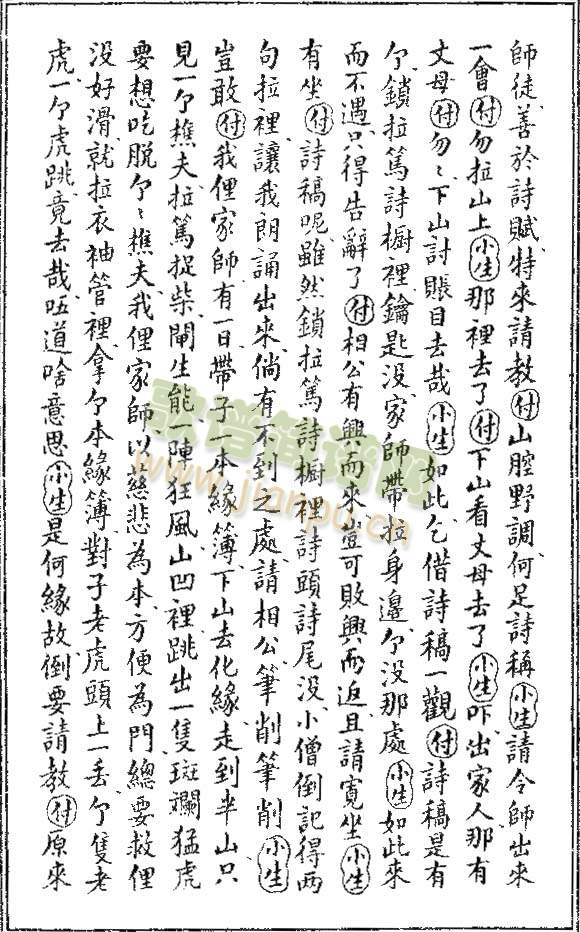 師徒善於詩賦特來請教付山腔野調何足詩稱小生請令師出來
一會付勿拉山上小生那裡去了付下山看丈母去了小生吓出家人那有
丈母付勿〻下山討賬目去哉小生如此乞借詩稿一觀付詩稿是有
个鎖拉篤詩櫥裡鑰匙没家師帶拉身邊个没那處小生如此來
而不遇只得告辭了付相公有興而來豈可敗興而返且請寬坐小生
有坐付詩稿呢雖然鎖拉篤詩櫥裡詩頭詩尾没小僧倒記得兩
句拉裡讓我朗誦出來倘有不到之處請相公筆削筆削小生
豈敢付我俚家師有一日帶子一本緣簿下山去化緣走到半山只
見一个樵夫拉篤捉柴閘生能一陣狂風山凹裡跳出一隻斑斕猛虎
要想吃脱个〻樵夫我俚家師以慈悲為本方便為門總要救俚
没好滑就拉衣袖管裡拿个本緣簿對子老虎頭上一丢个隻老
虎一个虎跳竟去哉㕶道啥意思小生是何緣故倒要請教付原來
歌譜簡譜網
www.jianpu.cn